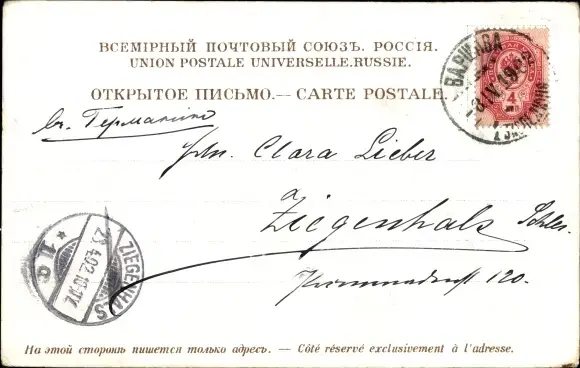 ВСЕМІРНЫЙ ПОЧТОВЫЙ СОЮЗЪ. РОССІЯ.
UNION POSTALE UNIVERSELLE. RUSSIE.
ОТКРЫТОЕ ПИСЬМО. — CARTE POSTALE.
ВАРШАВА
4
въ Германію
Frln. Clara Lieber
Ziegenhals Schles.
120.
ZIEGENHALS
23.4.02
На этой сторонѣ пишется только адресъ. — Côté réservé exclusivement à l'adresse.